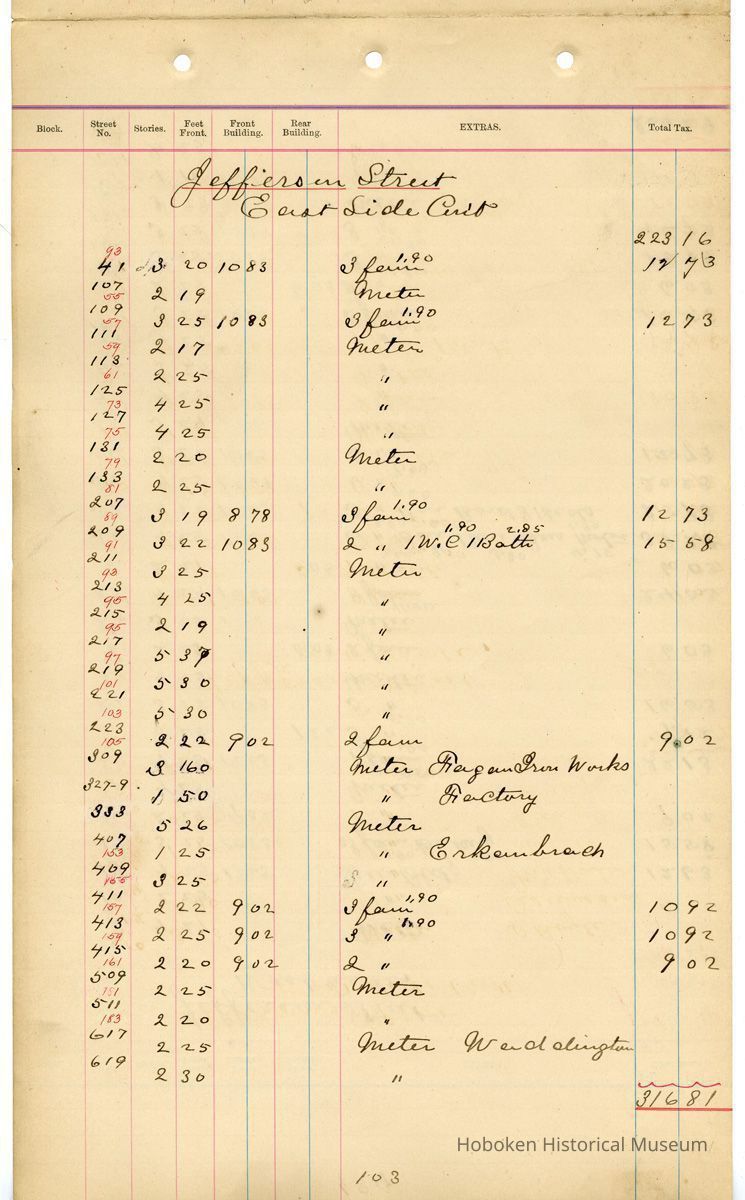 Block. Street No. Stories. Feet Front. Front Building. Rear Building. EXTRAS. Total Tax.
Jefferson Street
East Side Cont
223 16
93
41 3 20 10 83 3 fam 1.90 12 73
107
55 2 19 Meter
109
57 3 25 10 83 3 fam 1.90 12 73
111
59 2 17 Meter
113
61 2 25 "
125
73 4 25 "
127
75 4 25 "
131
79 2 20 Meter
133
81 2 25 "
207
89 3 19 8 78 3 fam 1.90 12 73
209
91 3 22 10 83 2 " 1 W.C 1.90 1 Bath 2.85 15 58
211
93 3 25 Meter
213
95 4 25 "
215
95 2 19 "
217
97 5 37 "
219
101 5 30 "
221
103 5 30 "
223
105 2 22 9 02 2 fam 9 02
309
3 160 Meter Fagan Iron Works
327-9
1 50 " Factory
333
5 26 Meter
407
153 1 25 " Erkenbrach
409
155 3 25 "
411
157 2 22 9 02 3 fam 1.90 10 92
413
159 2 25 9 02 3 " 1.90 10 92
415
161 2 20 9 02 2 " 9 02
509
181 2 25 Meter
511
183 2 20 "
617
2 25 Meter Waddington
619
2 30 "
316 81
Hoboken Historical Museum
103